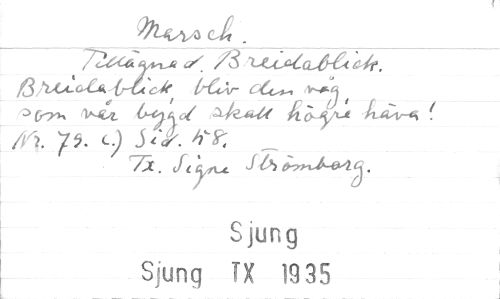 Marsch.
Tillägnad Breidablick.
Breidablick bliv den våg,
som vår bygd skall högre häva!
Nr. 79. c.) Sid. 58.
Tx. Signe Strömborg.
Sjung
Sjung TX 1935